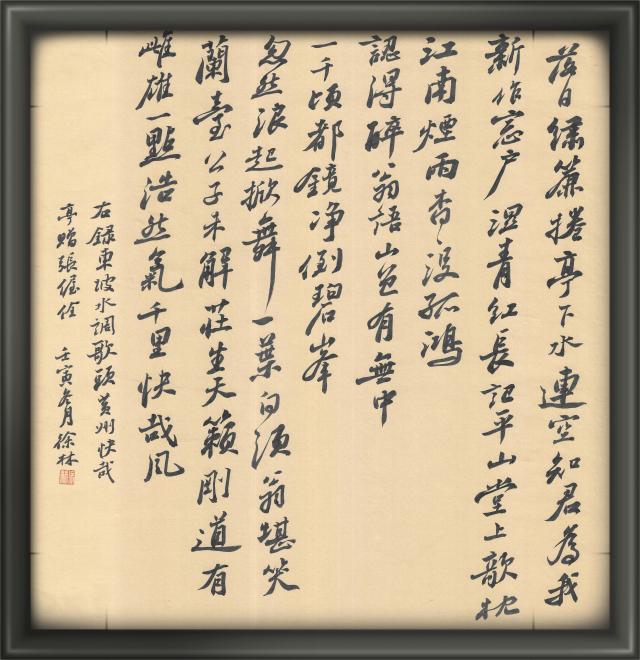 落日繡簾捲亭下水連空知君為我
新作窓户溼青紅長記平山堂上欹枕
江南煙雨杳〻没孤鴻
認得醉翁語山色有無中
一千頃都鏡净倒碧峯
忽然浪起掀舞一葉白頭翁堪笑
蘭臺公子未解莊生天籟剛道有
雌雄一點浩然氣千里快哉風
右錄東坡水調歌頭黄州快哉
亭贈張偓佺 壬寅冬月徐林